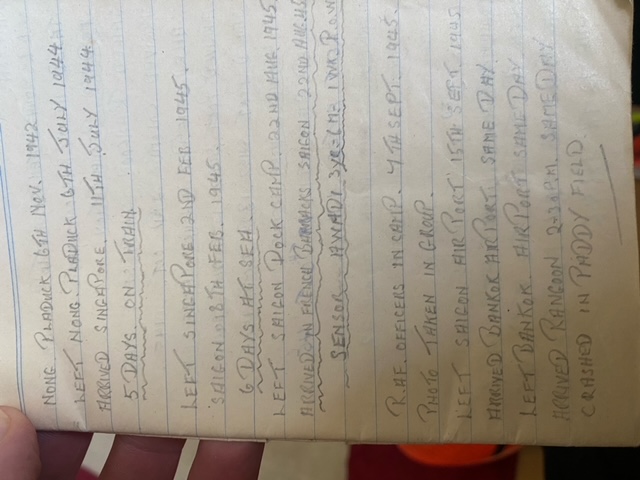 NONG PLADUCK 6TH NOV. 1942
LEFT NONG PLADUCK 6TH JULY 1944
ARRIVED SINGAPORE 11TH JULY 1944
5 DAYS ON TRAIN
LEFT SINGAPORE 2ND FEB 1945.
SAIGON 8TH FEB. 1945.
6 DAYS AT SEA
LEFT SAIGON DOCK CAMP 22ND AUG 1945
ARRIVED IN FRENCH BARRACKS SAIGON 22ND AUG
SENSOR
R.A.F. OFFICERS IN CAMP. 4TH SEPT. 1945.
PHOTO TAKEN IN GROUP.
LEFT SAIGON AIRPORT 15TH SEPT 1945
ARRIVED BANKOK AIRPORT SAME DAY
LEFT BANKOK AIRPORT SAME DAY
ARRIVED RANGOON 2-30 P.M. SAME DAY
CRASHED IN PADDY FIELD.